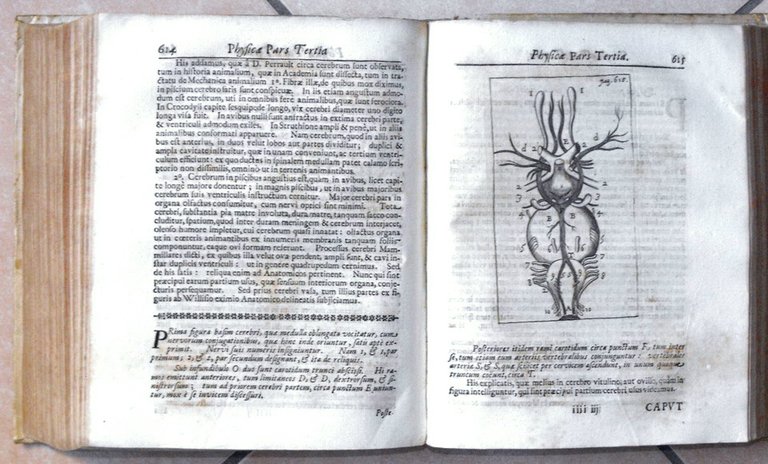 624 Physicæ Pars Tertia
His addamus, quæ à D. Perrault circa cerebrum sunt observata,
tum in historia animalium, quæ in Academia sunt dissecta, tum in tra-
ctatu de Mechanica animalium 1º. Fibræ illæ, de quibus mox diximus,
in piscium cerebro satis sunt conspicuæ. In iis etiam angustum admo-
dum est cerebrum, ut in omnibus ferè animalibus, quæ sunt ferociora.
In Crocodyli capite sesquipede longo, vix cerebri diameter uno digito
longa visa fuit. In avibus nulli sunt anfractus in extima cerebri parte,
& ventriculi admodum exiles. In Struthione ampli & penè, ut in aliis
animalibus conformati apparuere. Nam cerebrum, quod in aliis avi-
bus est anterius, in duos velut lobos aut partes dividitur; duplici &
ampla cavitate instruitur, quæ in unam conveniunt, ac tertium ventri-
culum efficiunt: ex quo ductus in spinalem medullam patet calamo scri-
ptorio non dissimilis, omnino ut in terrenis animantibus.
2º. Cerebrum in piscibus angustius est, quàm in avibus, licet capi-
te longè majore donentur; in magnis piscibus, ut in avibus majoribus
cerebrum suis ventriculis instructum cernitur. Major cerebri pars in
organa olfactus consumitur, cum nervi optici sint minimi. Tota
cerebri, substantia pia matre involuta, dura matre, tanquam sacco con-
cluditur, spatium, quod inter duram meningem & cerebrum interjacet,
oleoso humore impletur, cui cerebrum quasi innatat: olfactus organa
ut in cœteris animantibus ex innumeris membranis tanquam foliis
componuntur, eaque ovi formam referunt. Processus cerebri Mam-
millares dicti, ex quibus illa velut ova pendent, ampli sunt, & cavi in-
star duplicis ventriculi: ut in genere quadrupedum cernimus. Sed
de his satis: reliqua enim ad Anatomicos pertinent. Nunc qui sint
præcipui earum partium usus, quæ sensuum interiorum organa, conje-
cturis persequemur. Sed prius cerebri vasa, tum illius partes ex fi-
guris ab Willisio eximio Anatomico delineatis subjiciamus.
PRima figura basim cerebri, quæ medulla oblongata vocitatur, cum
nervorum conjugationibus, quæ hinc inde oriuntur, satis aptè ex-
primit. Nervi suis numeris insigniuntur. Nam 1, & 1, par
primum; 2, & 2, par secundum designant, & ita de reliquis.
Sub infundibulo O duo sunt carotidum trunci abscissi. Hi ra-
mos emittunt anteriores, tum limitaneos D, & D, dextrorsum, & si-
nistrorsum; tum ad priorem cerebri partem, circa punctum E uniun-
tur, mox à se invicem discessuri.
Poste-
Physicæ Pars Tertia. 615
pag. 615.
Posteriores itidem rami carotidum circa punctum F, tum inter
se, tum etiam cum arteriis vertebralibus conjunguntur: vertebrales
arteriæ S, & S, quæ scilicet per cervicem ascendunt, in unum quoque
truncum coeunt, circa T.
His explicatis, quæ melius in cerebro vitulino, aut ovillo, quàm in
figura intelliguntur, qui sint præcipui partium cerebri usus videamus.
iiii iij CAPUT